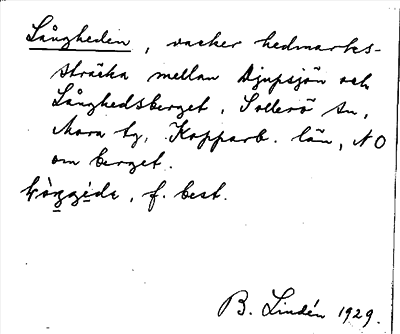 Långheden, vacker hedmarks-
sträcka mellan Djupsjön och
Långhedsberget, Sollerö sn,
Mora tg, Kopparb. län, NO
om berget.
f. best.
B. Lindén 1929.